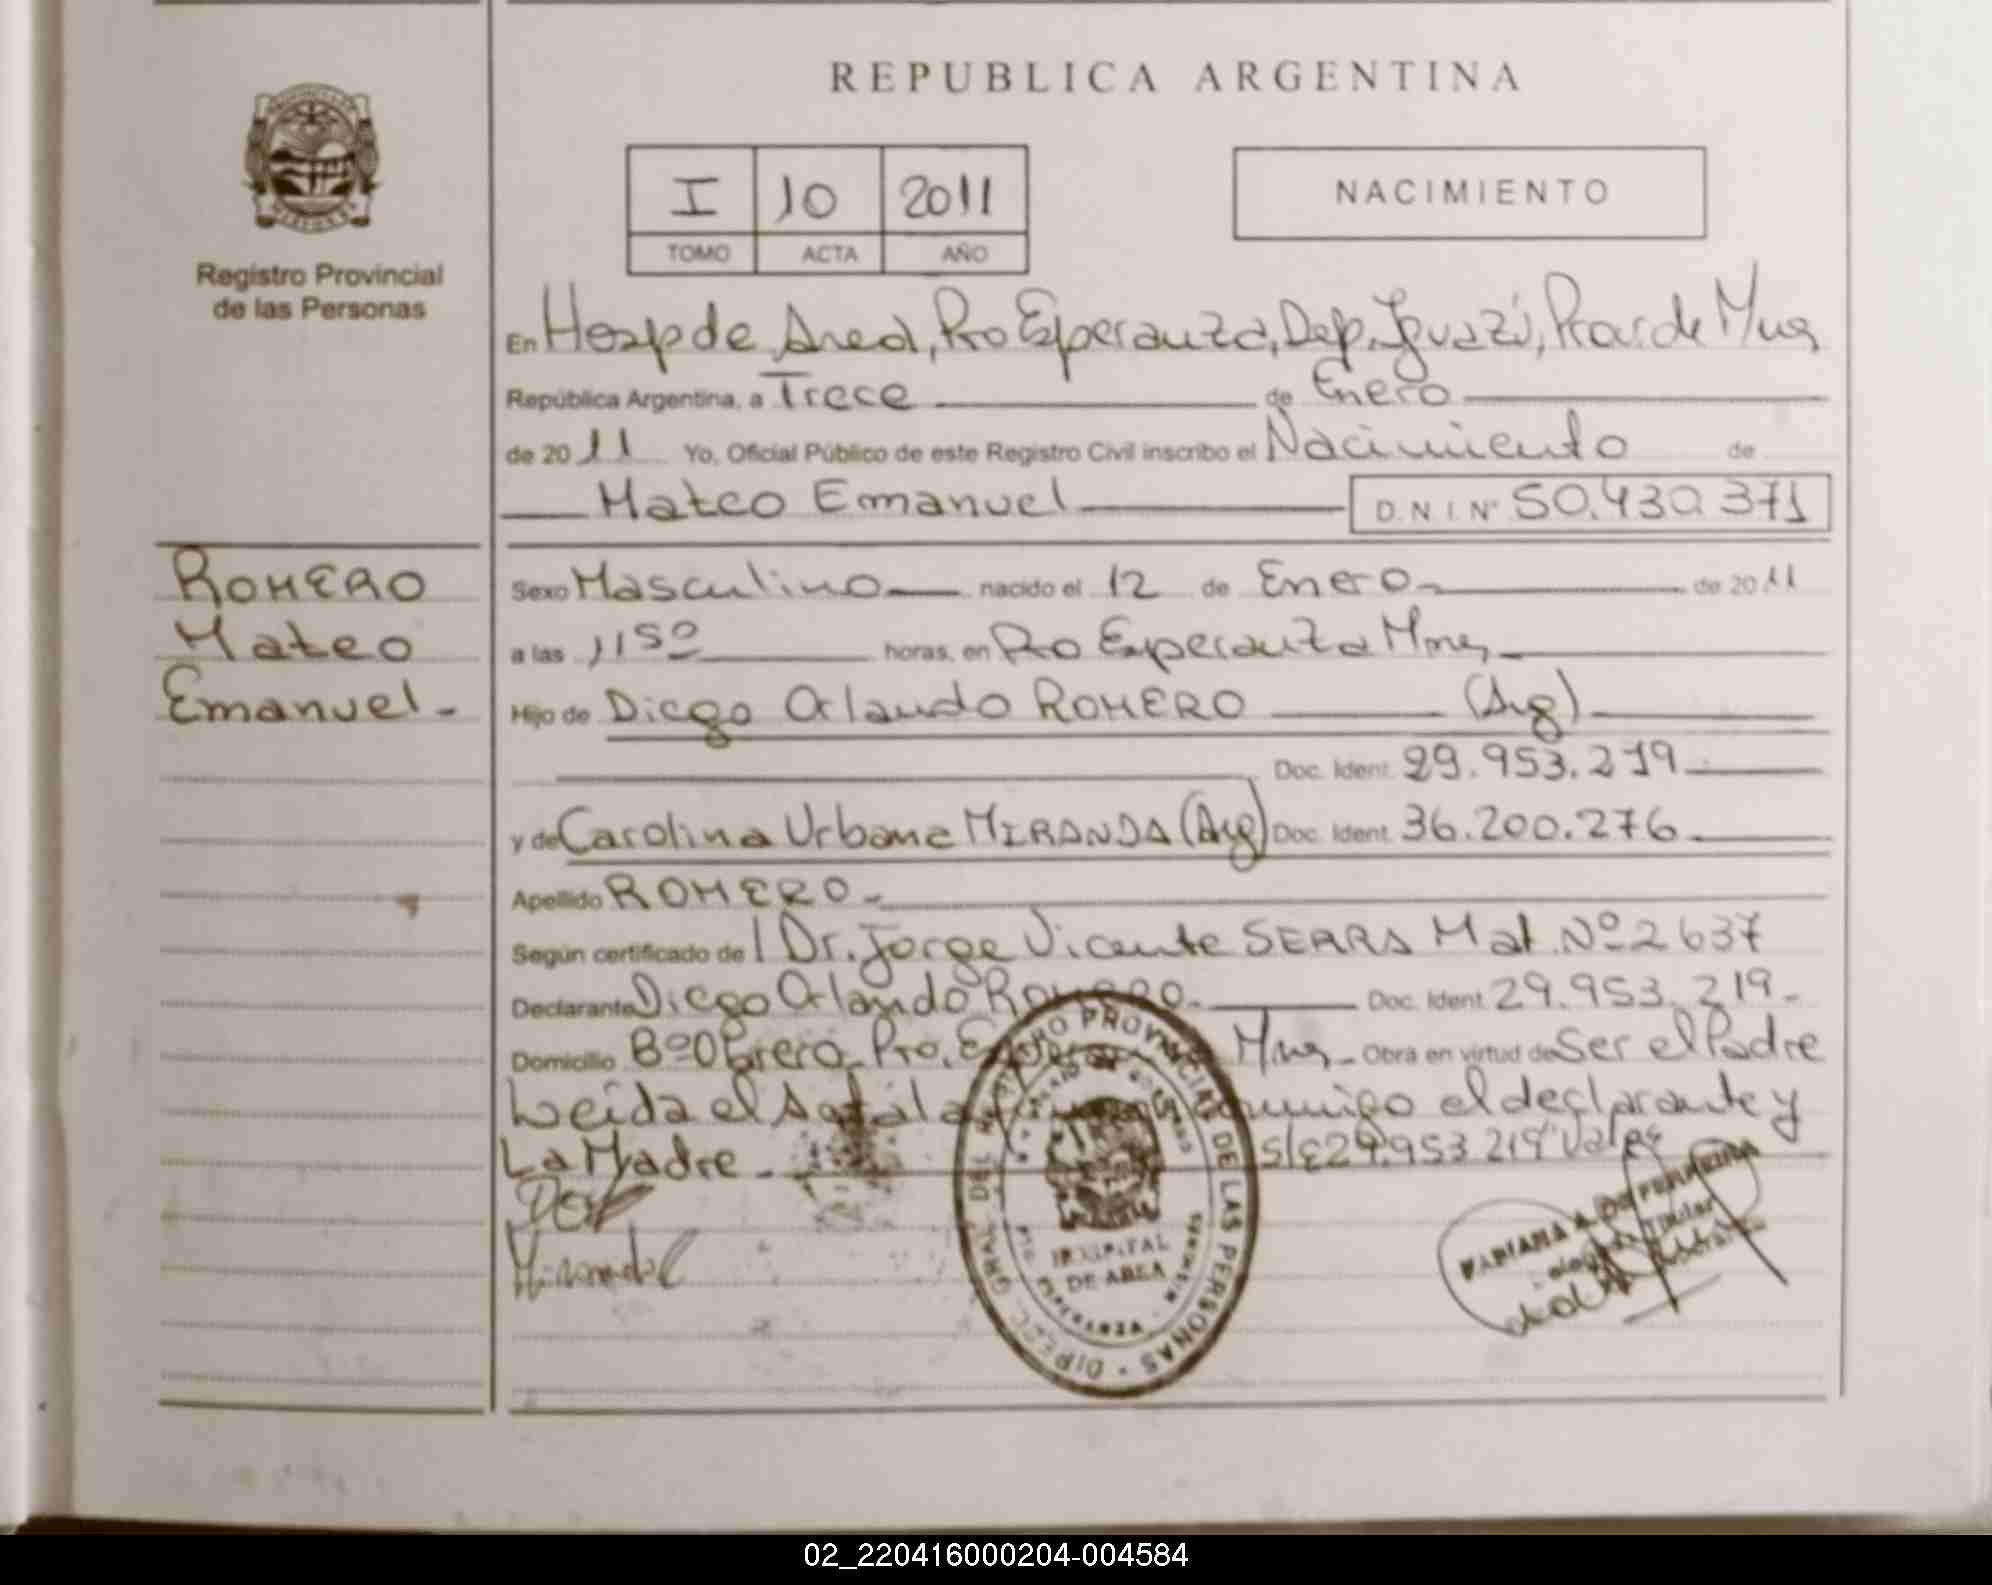 REPUBLICA ARGENTINA
I 10 2011
TOMO ACTA AÑO
NACIMIENTO
Registro Provincial
de las Personas
En Hosp de Area, Pto Esperanza, Dep. Iguazú, Prov. de Mnes
República Argentina, a Trece de Enero
de 2011 Yo, Oficial Público de este Registro Civil inscribo el Nacimiento de
Mateo Emanuel D.N.I. Nº 50.430.371
ROMERO
Mateo
Emanuel-
Sexo Masculino nacido el 12 de Enero de 2011
a las 11 50 horas, en Pto Esperanza Mnes
Hijo de Diego Orlando ROMERO (Arg)
Doc. Ident. 29.953.219
y de Carolina Urbana MIRANDA (Arg) Doc. Ident. 36.200.276
Apellido ROMERO-
Según certificado de Dr. Jorge Vicente SERRA Mat. Nº 2637
Declarante Diego Orlando ROMERO- Doc. Ident. 29.953.219-
Domicilio Bº Obrero Pto. Mnes- Obra en virtud de Ser el Padre
Leida el Acta la conmigo el declarante y
La Madre- S/E 29.953.219 Vale
DIREC. GRAL. DEL REGISTRO PROVINCIAL DE LAS PERSONAS
HOSPITAL
DE AREA
PTO. ESPERANZA
02_220416000204-004584